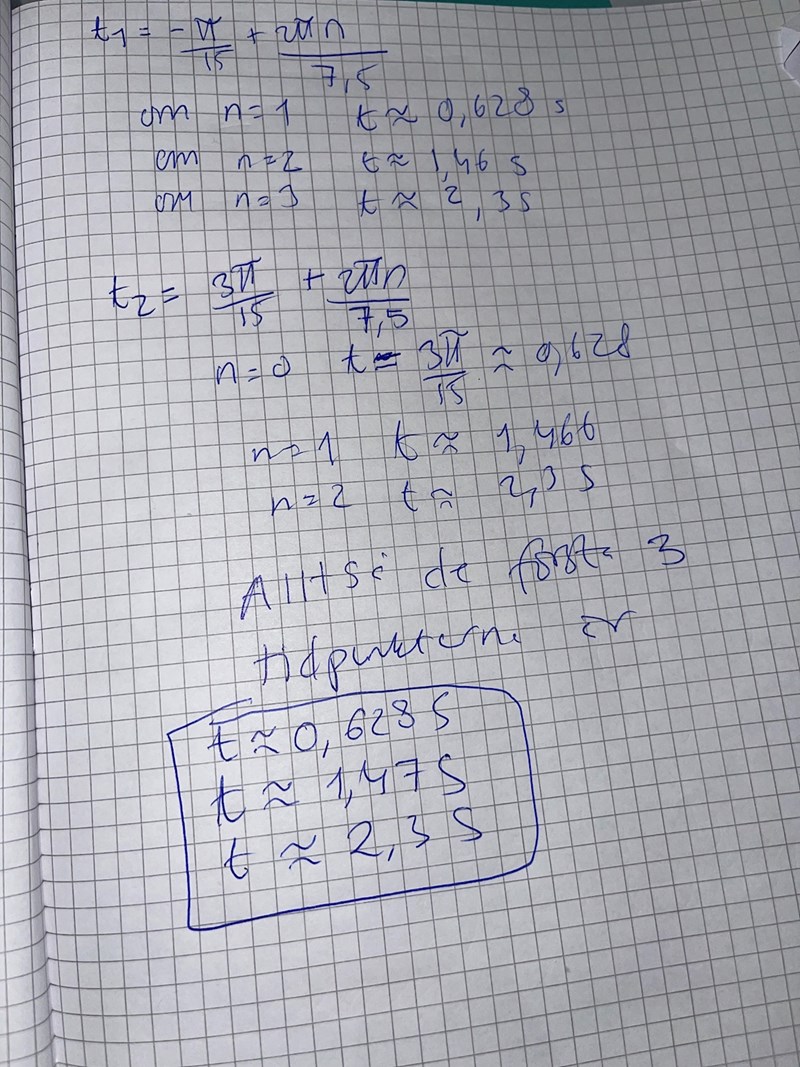 t₁ = -π/15 + 2πn/7,5
om n=1 t ≈ 0,628 s
om n=2 t ≈ 1,46 s
om n=3 t ≈ 2,3s
t₂ = 3π/15 + 2πn/7,5
n=0 t = 3π/15 ≈ 0,628
n=1 t ≈ 1,466
n=2 t ≈ 2,3 s
Alltså de första 3
tidpunkterna är
t ≈ 0,628 s
t ≈ 1,47 s
t ≈ 2,3 s